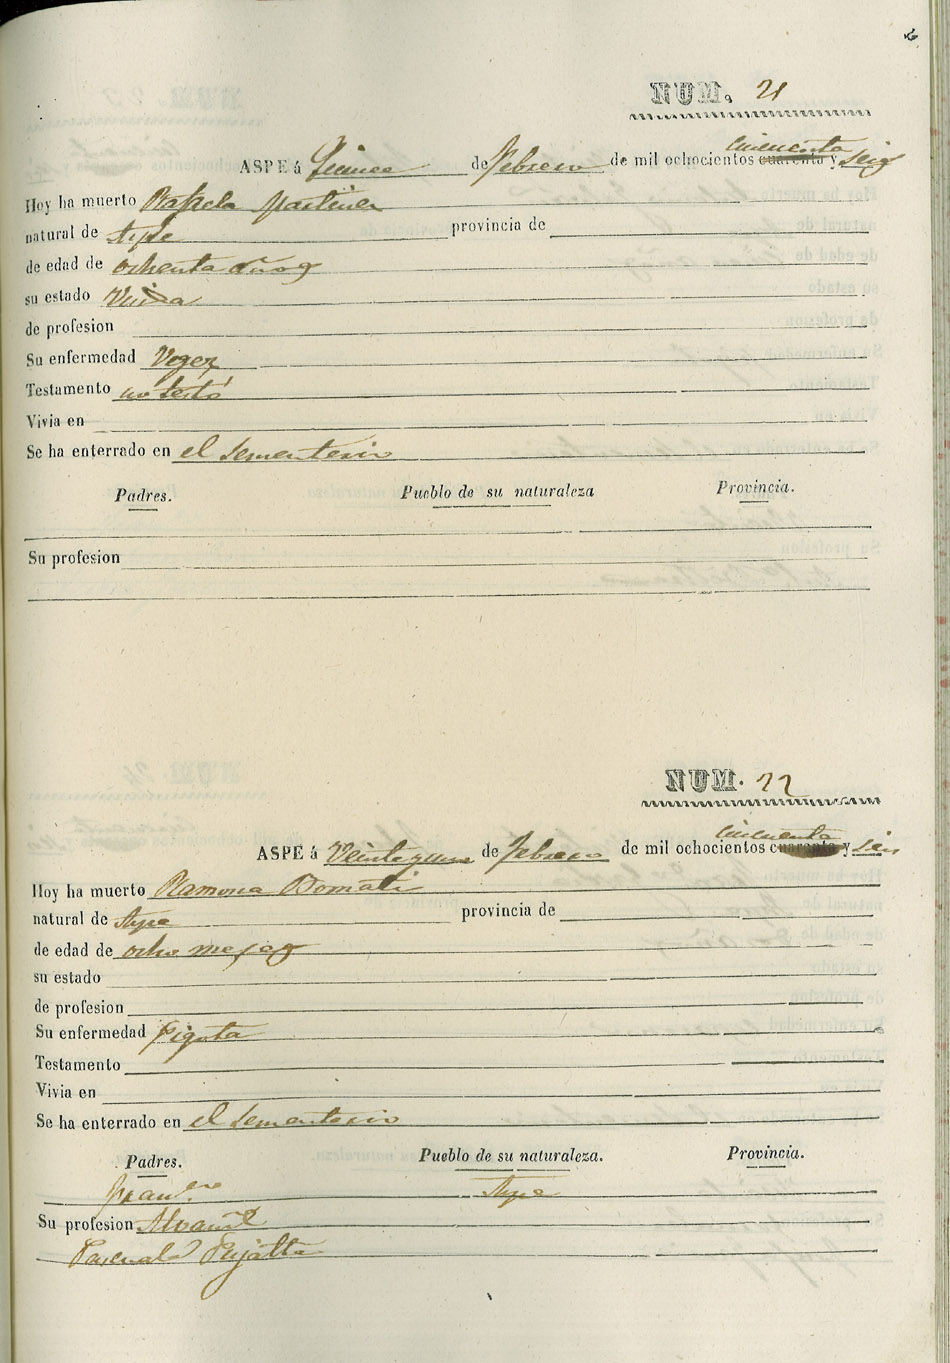 NUM. 21
ASPE á Quince de Febrero de mil ochocientos cincuenta y seis
Hoy ha muerto Rafaela Martinez
natural de Aspe provincia de
de edad de ochenta años
su estado Viuda
de profesion
Su enfermedad Vegez
Testamento no testó
Vivia en
Se ha enterrado en el sementerio
Padres. Pueblo de su naturaleza Provincia.
Su profesion
NUM. 22
ASPE á de Febrero de mil ochocientos cincuenta y seis
Hoy ha muerto Ramona
natural de Aspe provincia de
de edad de ocho meses
su estado
de profesion
Su enfermedad
Testamento
Vivia en
Se ha enterrado en el sementerio
Padres. Pueblo de su naturaleza. Provincia.
Aspe
Su profesion Alvañil
Pascuala